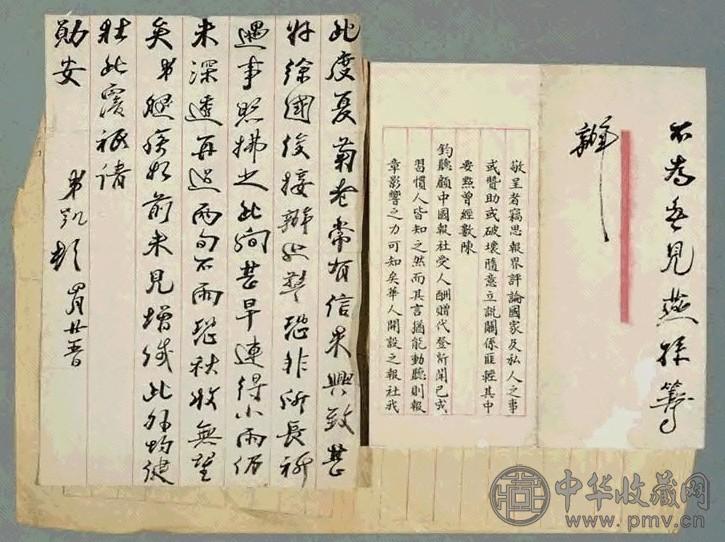 不為無見燕孫籌
辦
敬呈者竊思報界評論國家及私人之事
或贊助或破壞隨意立説關係匪輕其中
要點曾經數陳
鈞聽顧中國報社受人酬贈代登新聞已成
習慣人皆知之然而其言猶能動聽則報
章影響之力可知矣華人開設之報社我
此度夏菊老常有信來興致甚
好徐國俊接辦此恐非所長祈
遇事照拂之此間甚旱連得小雨仍
未深透再過兩旬不雨恐秋收無望
矣弟腿疾如前未見增減此外均健
壯此復祗請
勛安
弟凱頓
中华收藏网
www.pmv.cn